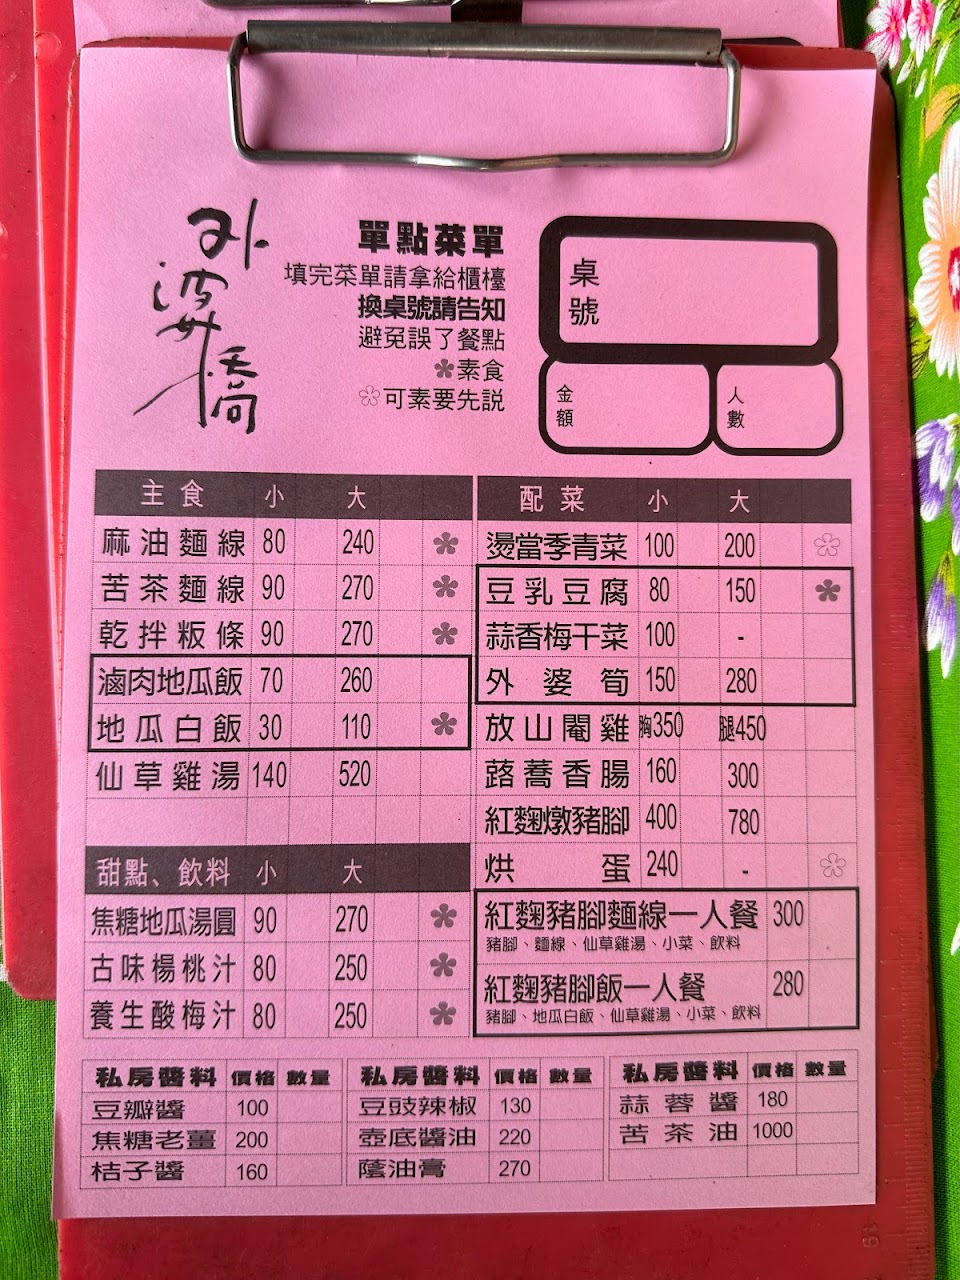 外婆橋
單點菜單
填完菜單請拿給櫃檯
換桌號請告知
避免誤了餐點
✽素食
❀可素要先説
桌號
金額
人數
主食 小 大
麻油麵線 80 240 ✽
苦茶麵線 90 270 ✽
乾拌粄條 90 270 ✽
滷肉地瓜飯 70 260
地瓜白飯 30 110 ✽
仙草雞湯 140 520
甜點、飲料 小 大
焦糖地瓜湯圓 90 270 ✽
古味楊桃汁 80 250 ✽
養生酸梅汁 80 250 ✽
配菜 小 大
燙當季青菜 100 200 ❀
豆乳豆腐 80 150 ✽
蒜香梅干菜 100 -
外婆筍 150 280
放山閹雞 胸350 腿450
蕗蕎香腸 160 300
紅麴燉豬腳 400 780
烘蛋 240 - ❀
紅麴豬腳麵線一人餐 300
豬腳、麵線、仙草雞湯、小菜、飲料
紅麴豬腳飯一人餐 280
豬腳、地瓜白飯、仙草雞湯、小菜、飲料
私房醬料 價格 數量
豆瓣醬 100
焦糖老薑 200
桔子醬 160
私房醬料 價格 數量
豆豉辣椒 130
壺底醬油 220
蔭油膏 270
私房醬料 價格 數量
蒜蓉醬 180
苦茶油 1000
19